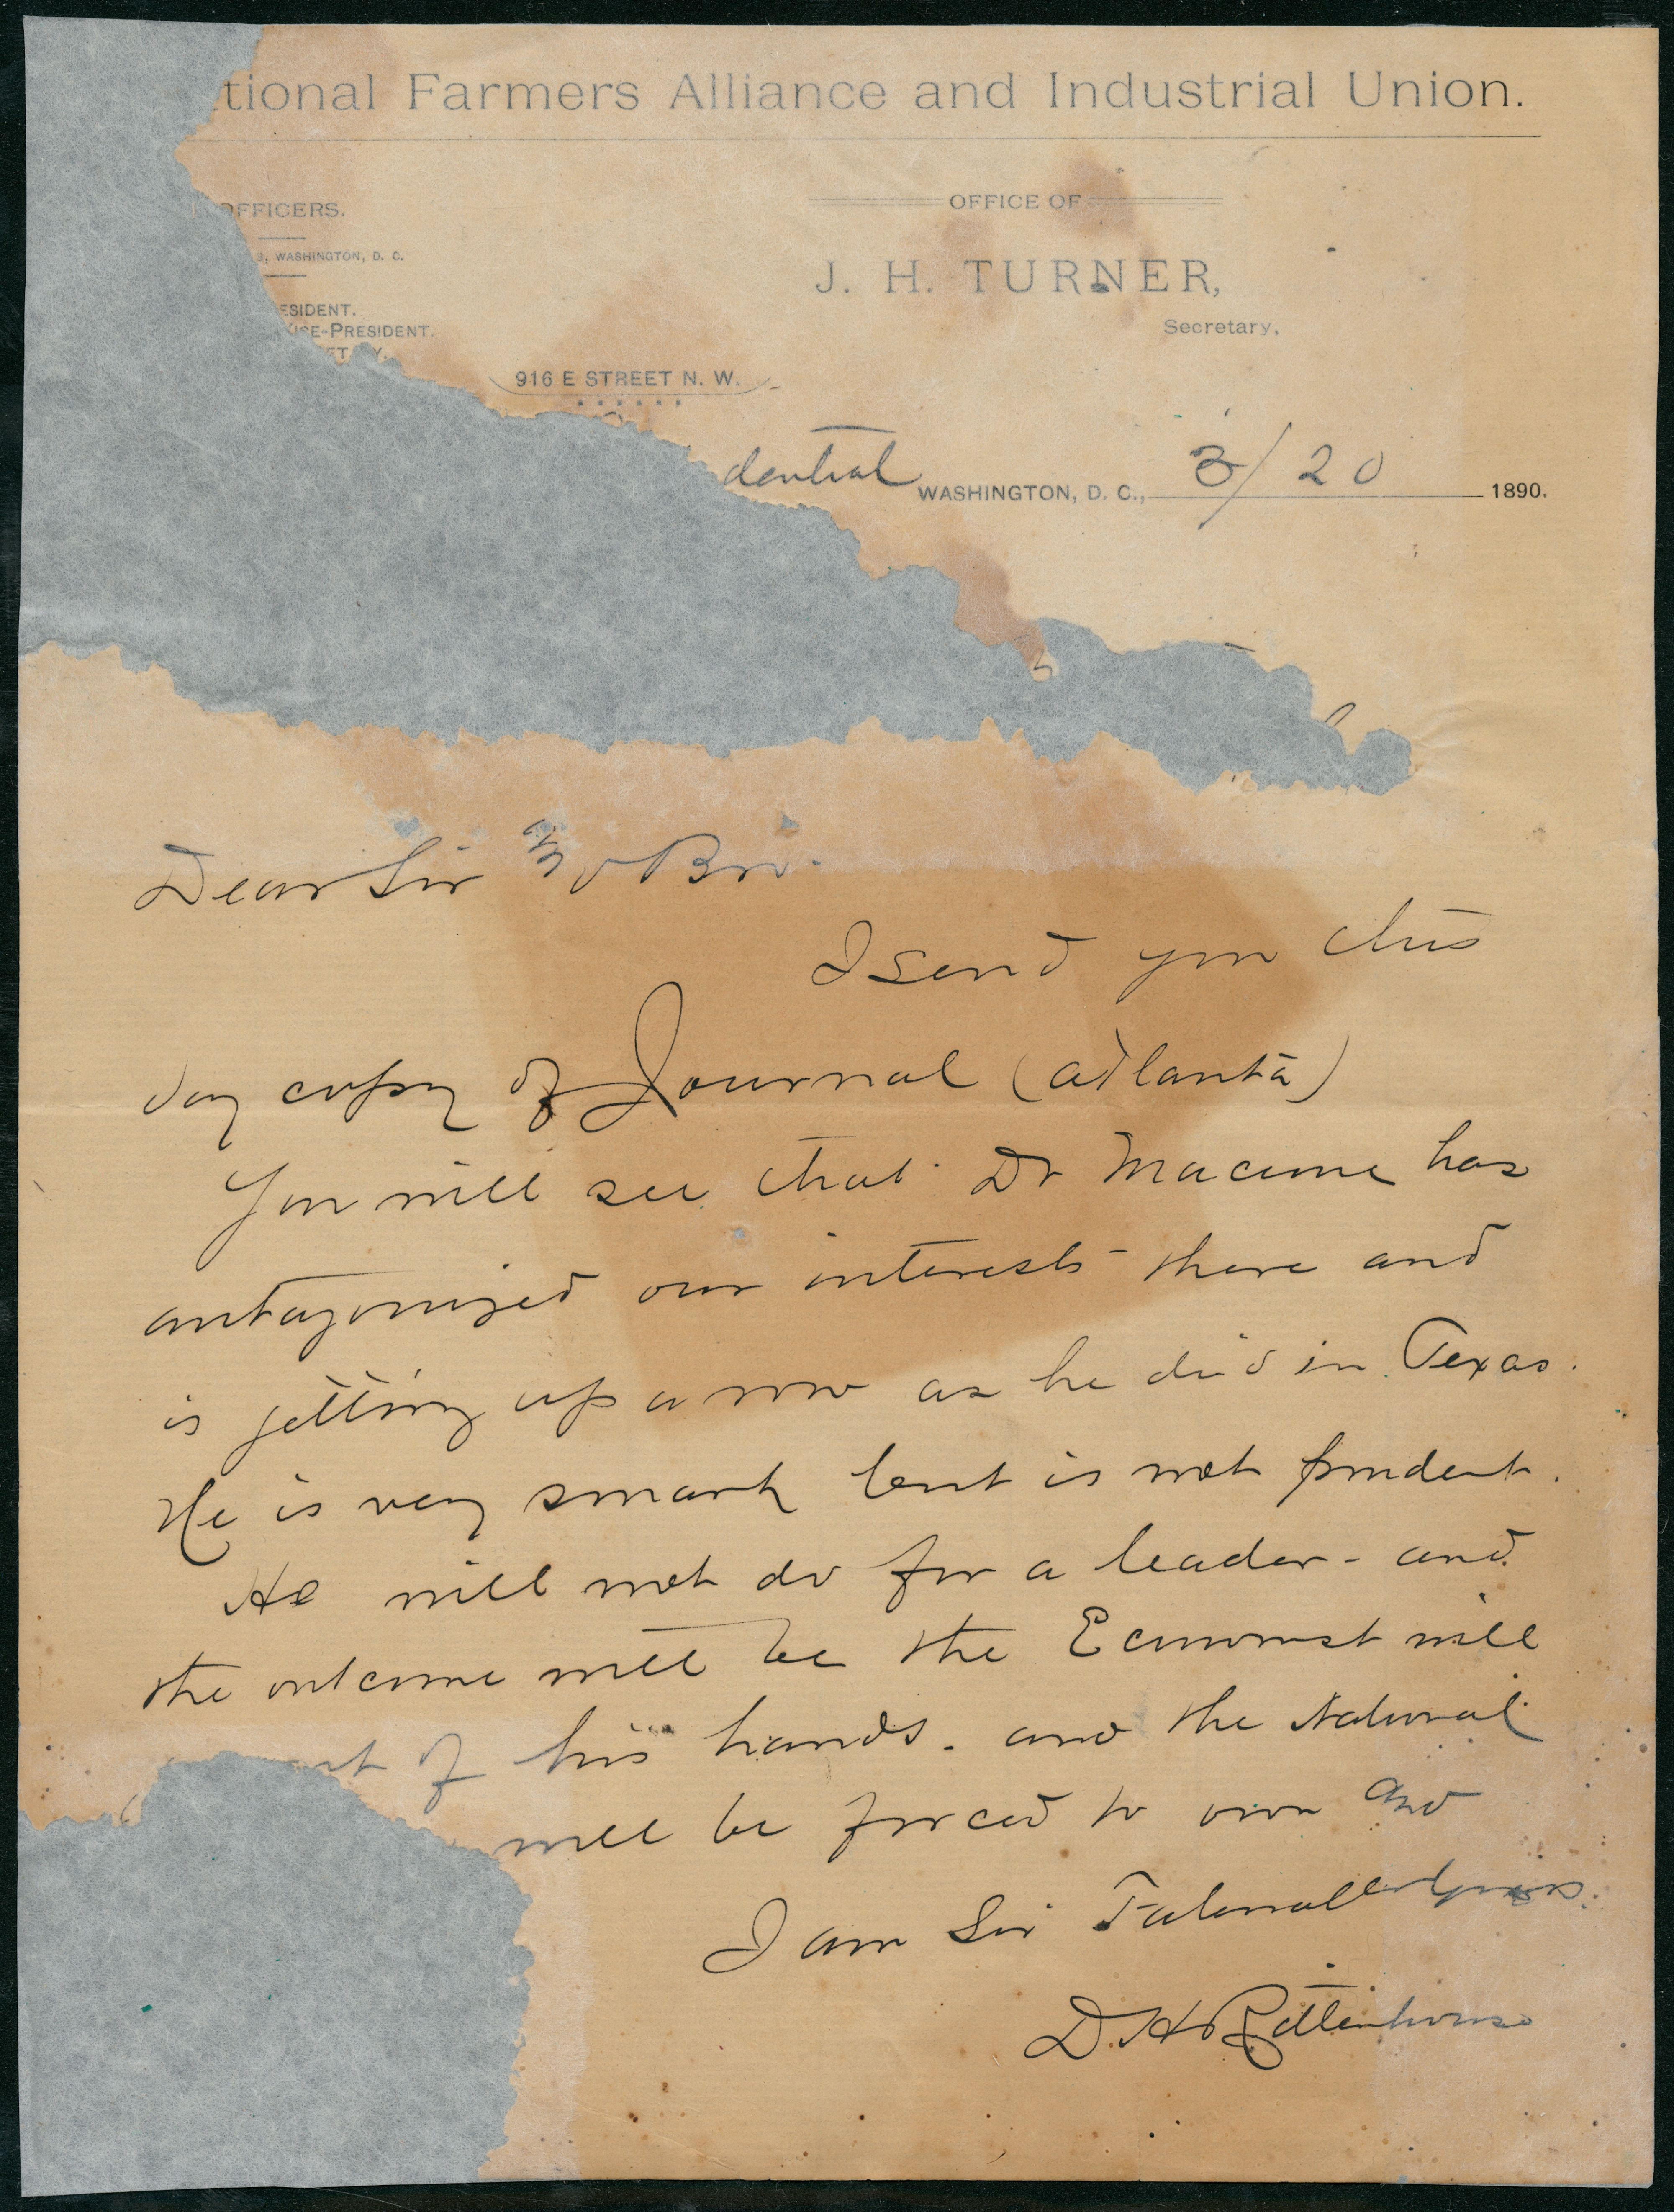 tional Farmers Alliance and Industrial Union.
OFFICERS.
WASHINGTON, D. C.
ESIDENT.
VICE-PRESIDENT.
ETARY.
916 E STREET N. W.
OFFICE OF
J. H. TURNER,
Secretary,
dential WASHINGTON, D. C., 3/20 1890.
Dear Sir & Bro.
I send you this
day copy of Journal (atlanta)
You will see that Dr Macune has
antagonized our interests there and
is getting up a row as he did in Texas.
He is very smart but is not prudent.
He will not do for a leader - and
the outcome will be the Economist will
out of his hands. and the National
will be forced to own and
I am Sir Fraternally yours.
D. H. Rittenhouse